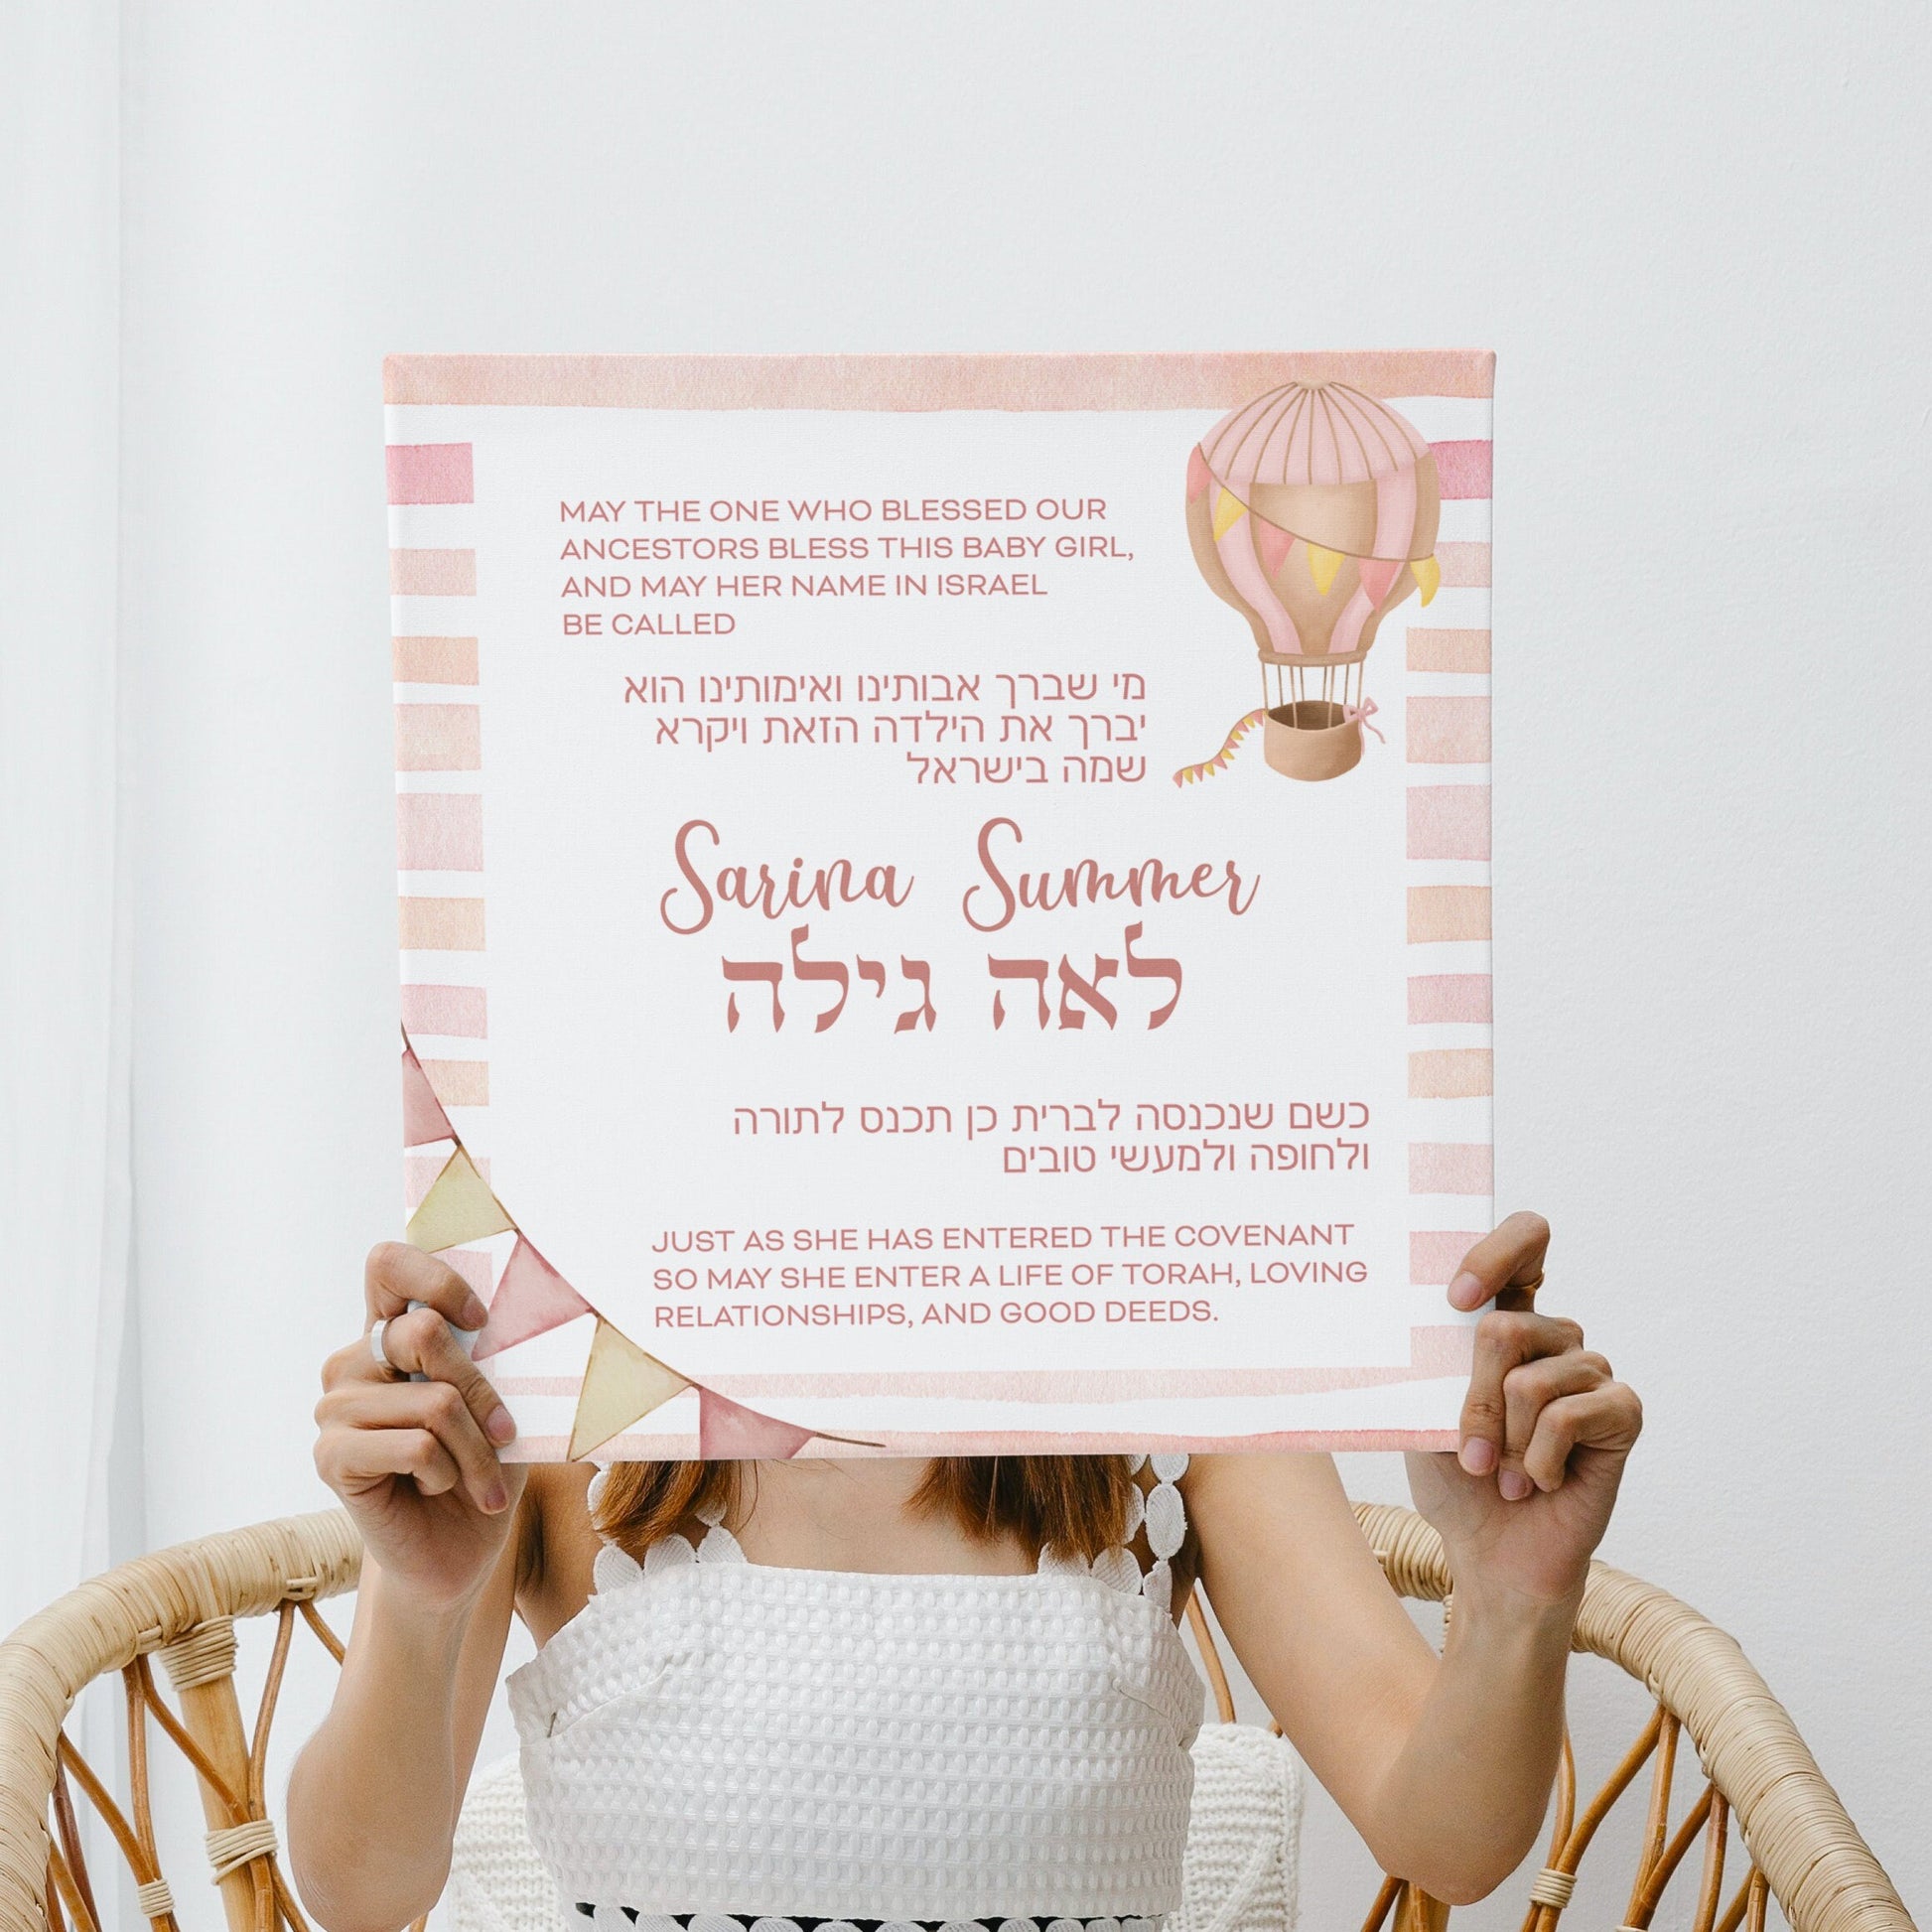 MAY THE ONE WHO BLESSED OUR
ANCESTORS BLESS THIS BABY GIRL,
AND MAY HER NAME IN ISRAEL
BE CALLED
מי שברך אבותינו ואימותינו הוא
יברך את הילדה הזאת ויקרא
שמה בישראל
Sarina Summer
לאה גילה
כשם שנכנסה לברית כן תכנס לתורה
ולחופה ולמעשי טובים
JUST AS SHE HAS ENTERED THE COVENANT
SO MAY SHE ENTER A LIFE OF TORAH, LOVING
RELATIONSHIPS, AND GOOD DEEDS.